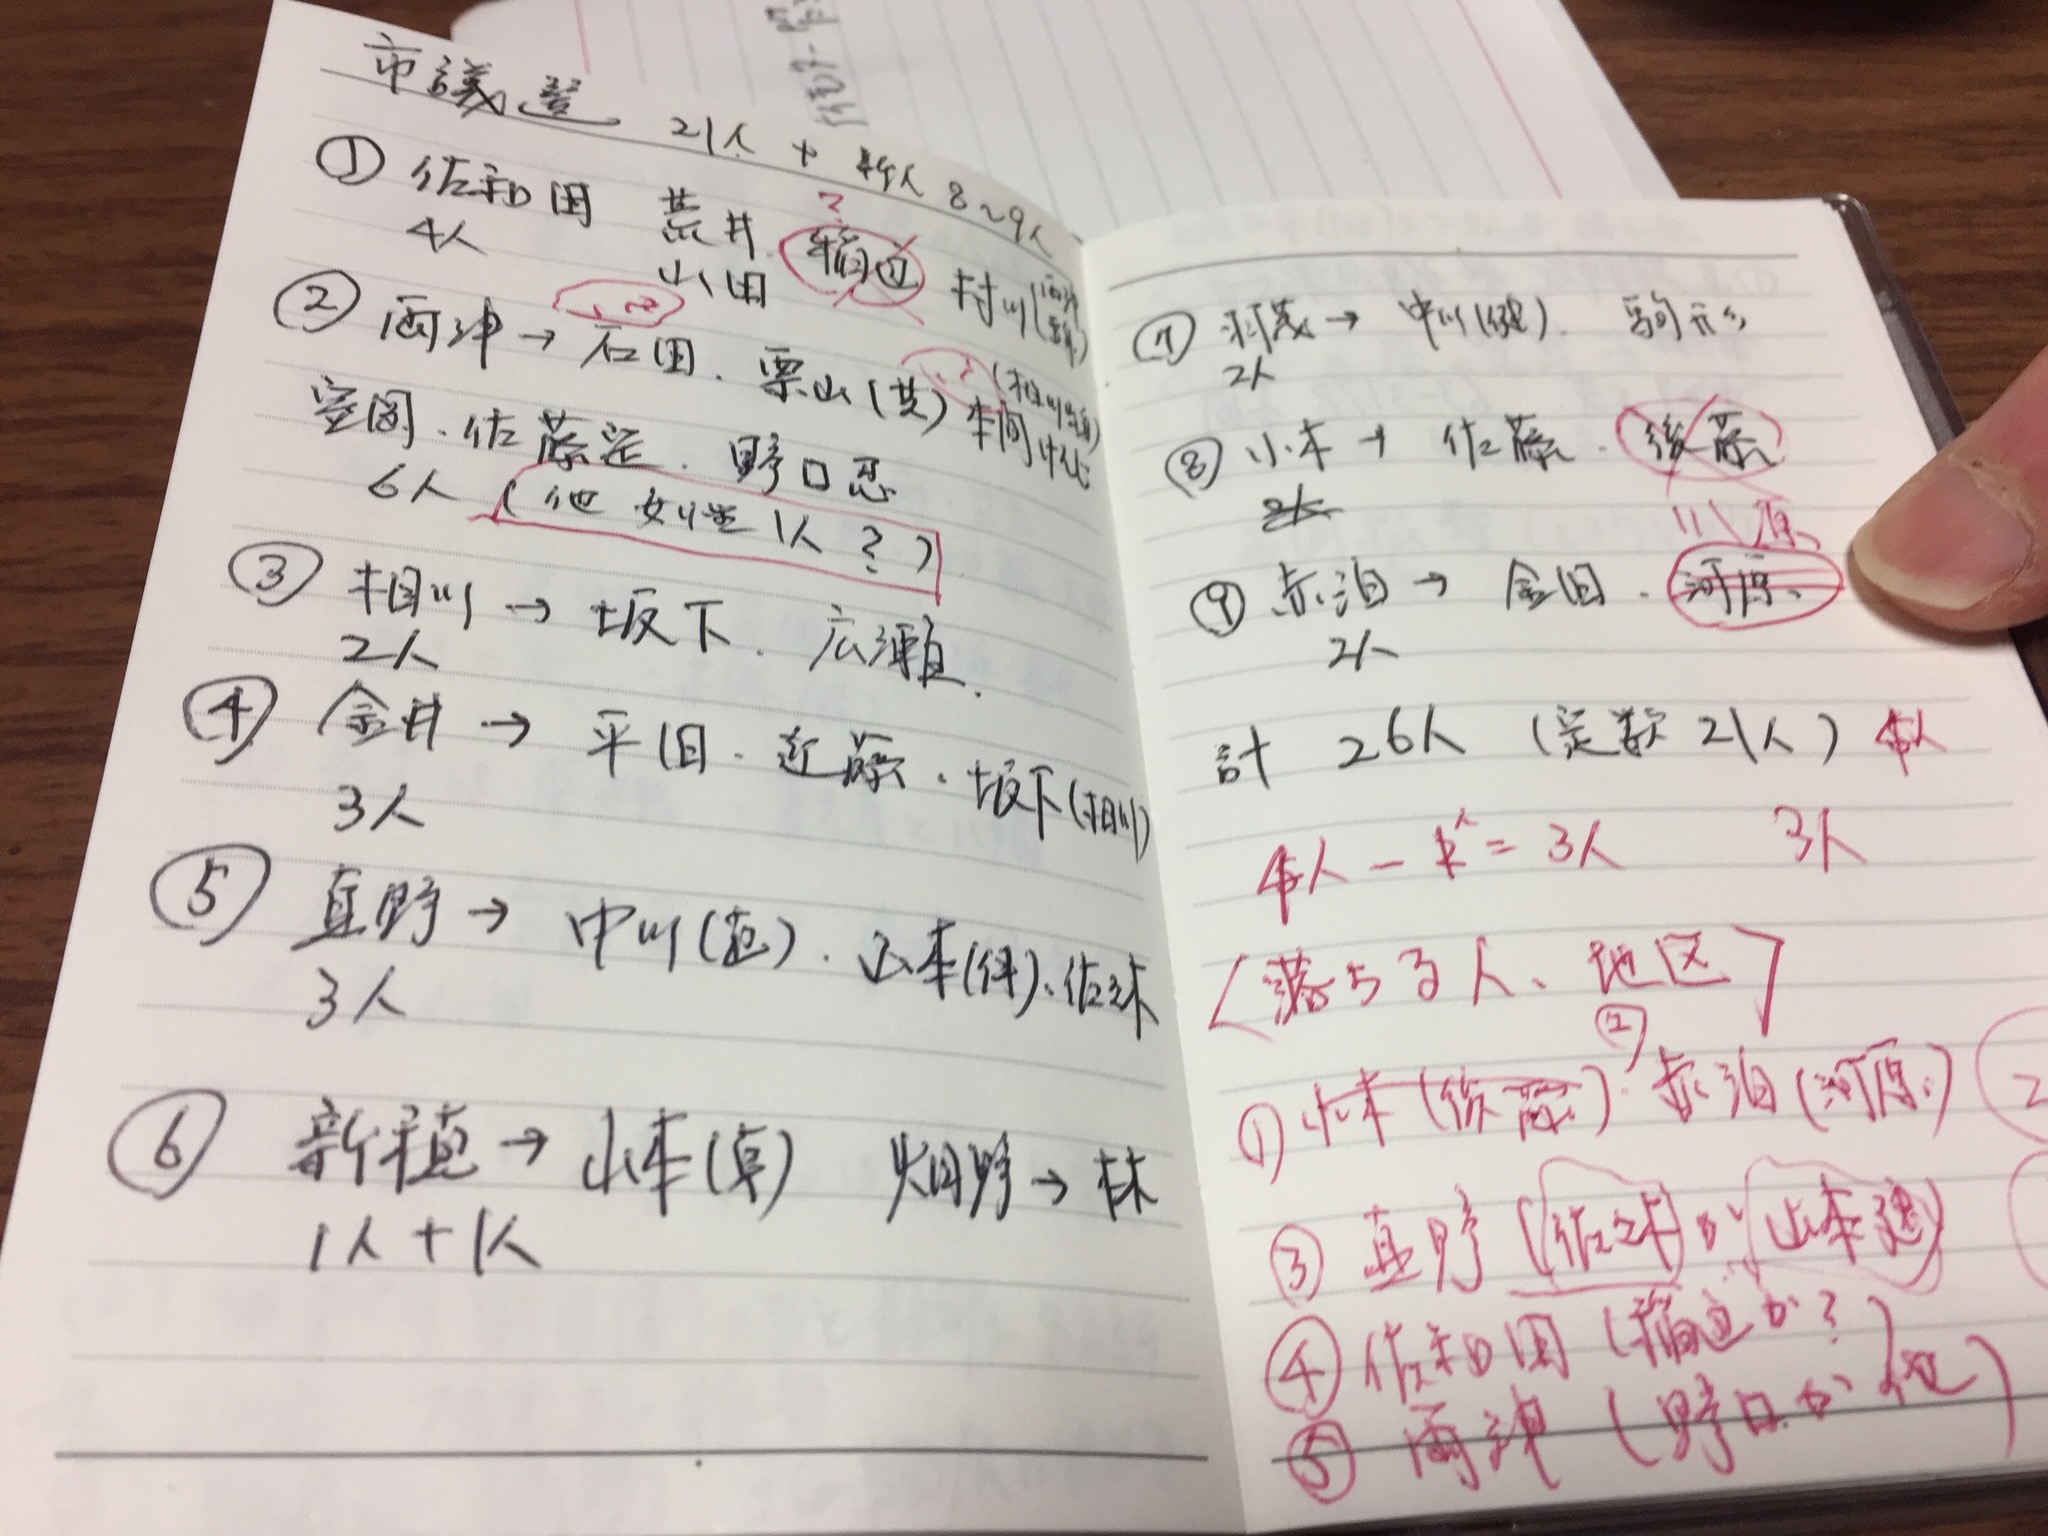 市議選 21人 + 新人 8〜9人
① 佐和田 荒井 稲辺 ?
4人 山田 村川
② 両津→ 石田. 栗山(共) 本間
空岡. 佐藤定. 野口忍
6人 (他 女性1人?)
③ 相川 → 坂下. 広瀬.
2人
④ 金井 → 平田. 近藤. 坂下(相川)
3人
⑤ 真野 → 中川(範). 山本(伊). 佐々木
3人
⑥ 新穂 → 山本(卓) 畑野 → 林
1人+1人
⑦ 羽茂 → 中川(健). 駒形
2人
⑧ 小木 → 佐藤. 後藤
2人
小原
⑨ 赤泊 → 金田. 河原
2人
計 26人 (定数21人)
3人 3人
〈落ちる人、地区〉
① 小木(後藤). ② 赤泊(河原)
③ 真野 (佐々木) か 山本
④ 佐和田 (稲辺か?)
⑤ 両津 (野口か 他)